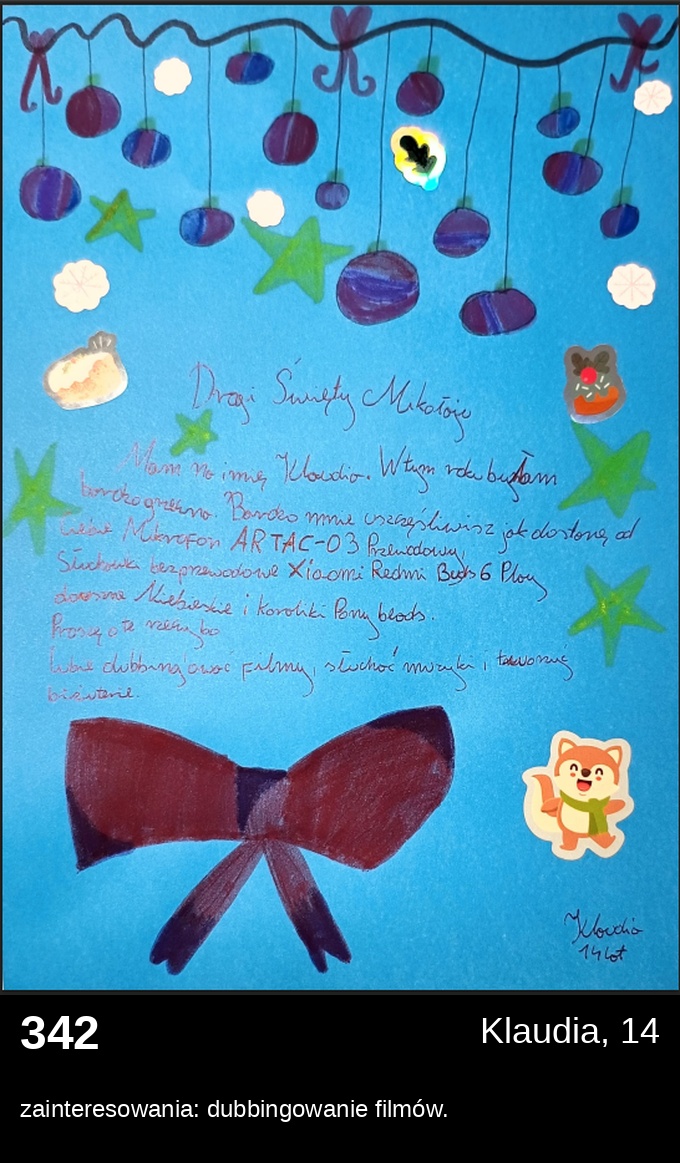 Drogi Święty Mikołaju
Mam na imię Klaudia. W tym roku byłam
bardzo grzeczna. Bardzo mnie uszczęśliwisz jak dostanę od
Ciebie Mikrofon ARTAC-03 Przewodowy,
Słuchawki bezprzewodowe Xiaomi Redmi Buds 6 Play
douszne Niebieskie i Koraliki Pony beads.
Proszę o te rzeczy bo
lubie dubbingować filmy, słuchać muzyki i tworzyć
biżuterie.
Klaudia
14 lat
342
Klaudia, 14
zainteresowania: dubbingowanie filmów.